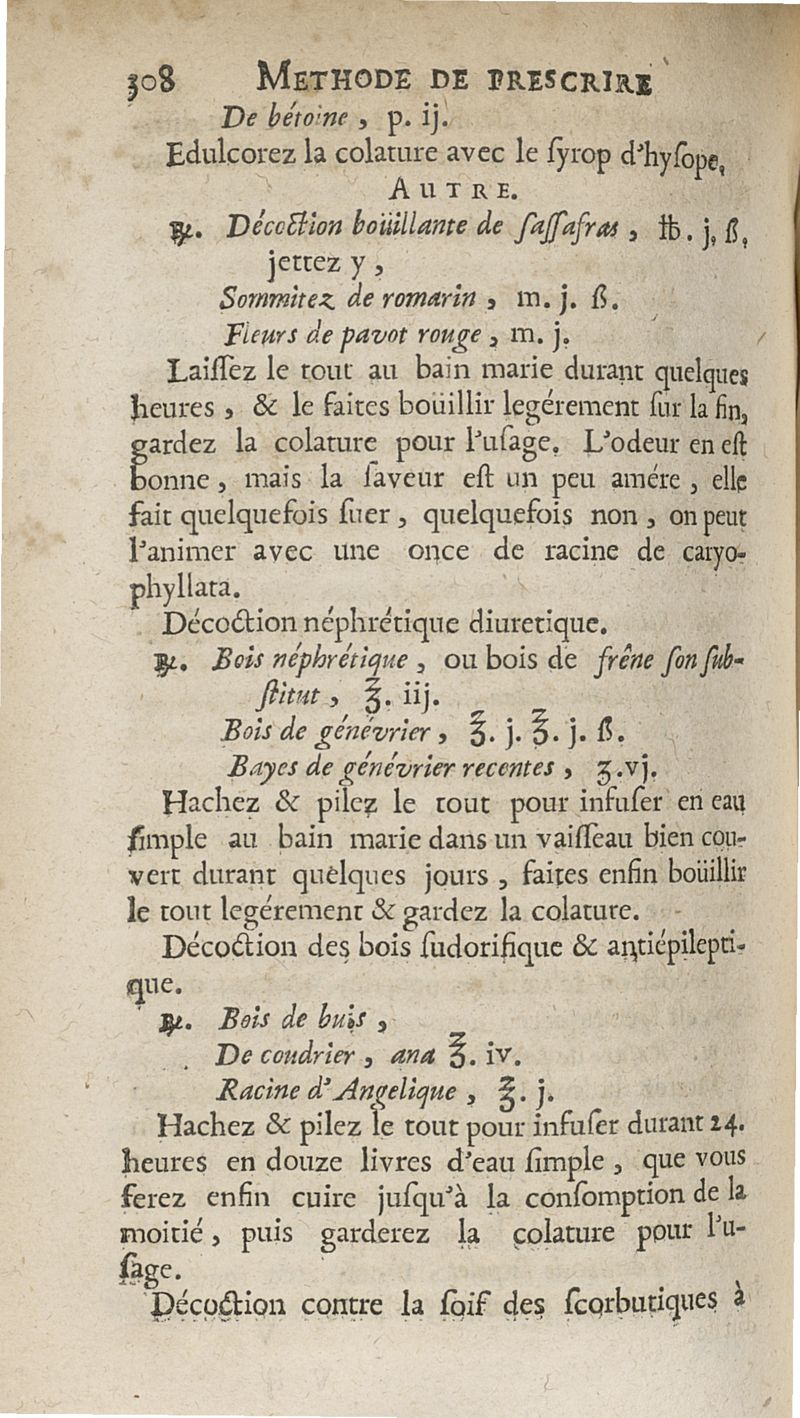 308 METHODE DE PRESCRIRE
De bétoine, p. ij.
Edulcorez la colature avec le ſyrop d'hyſope,
AUTRE.
℞. Décoction boüillante de ſaſſafras, ℔. j, ß,
jettez y,
Sommitez de romarin, m. j. ß.
Fleurs de pavot rouge, m. j.
Laiſſez le tout au bain marie durant quelques
heures, & le faites boüillir legérement ſur la fin,
gardez la colature pour l'uſage. L'odeur en eſt
bonne, mais la ſaveur eſt un peu amére, elle
fait quelquefois ſuer, quelquefois non, on peut
l'animer avec une once de racine de caryo-
phyllata.
Décoction néphrétique diuretique.
℞. Bois néphrétique, ou bois de frêne ſon ſub-
ſtitut, ℥. iij.
Bois de génévrier, ℥. j. ℥. j. ß.
Bayes de génévrier recentes, ʒ. vj.
Hachez & pilez le tout pour infuſer en eau
ſimple au bain marie dans un vaiſſeau bien cou-
vert durant quelques jours, faites enfin boüillir
le tout legérement & gardez la colature.
Décoction des bois ſudorifique & antiépilepti-
que.
℞. Bois de buis,
De coudrier, ana ℥. iv.
Racine d'Angelique, ℥. j.
Hachez & pilez le tout pour infuſer durant 24.
heures en douze livres d'eau ſimple, que vous
ferez enfin cuire juſqu'à la conſomption de la
moitié, puis garderez la colature pour l'u-
ſage.
Décoction contre la ſoif des ſcorbutiques à